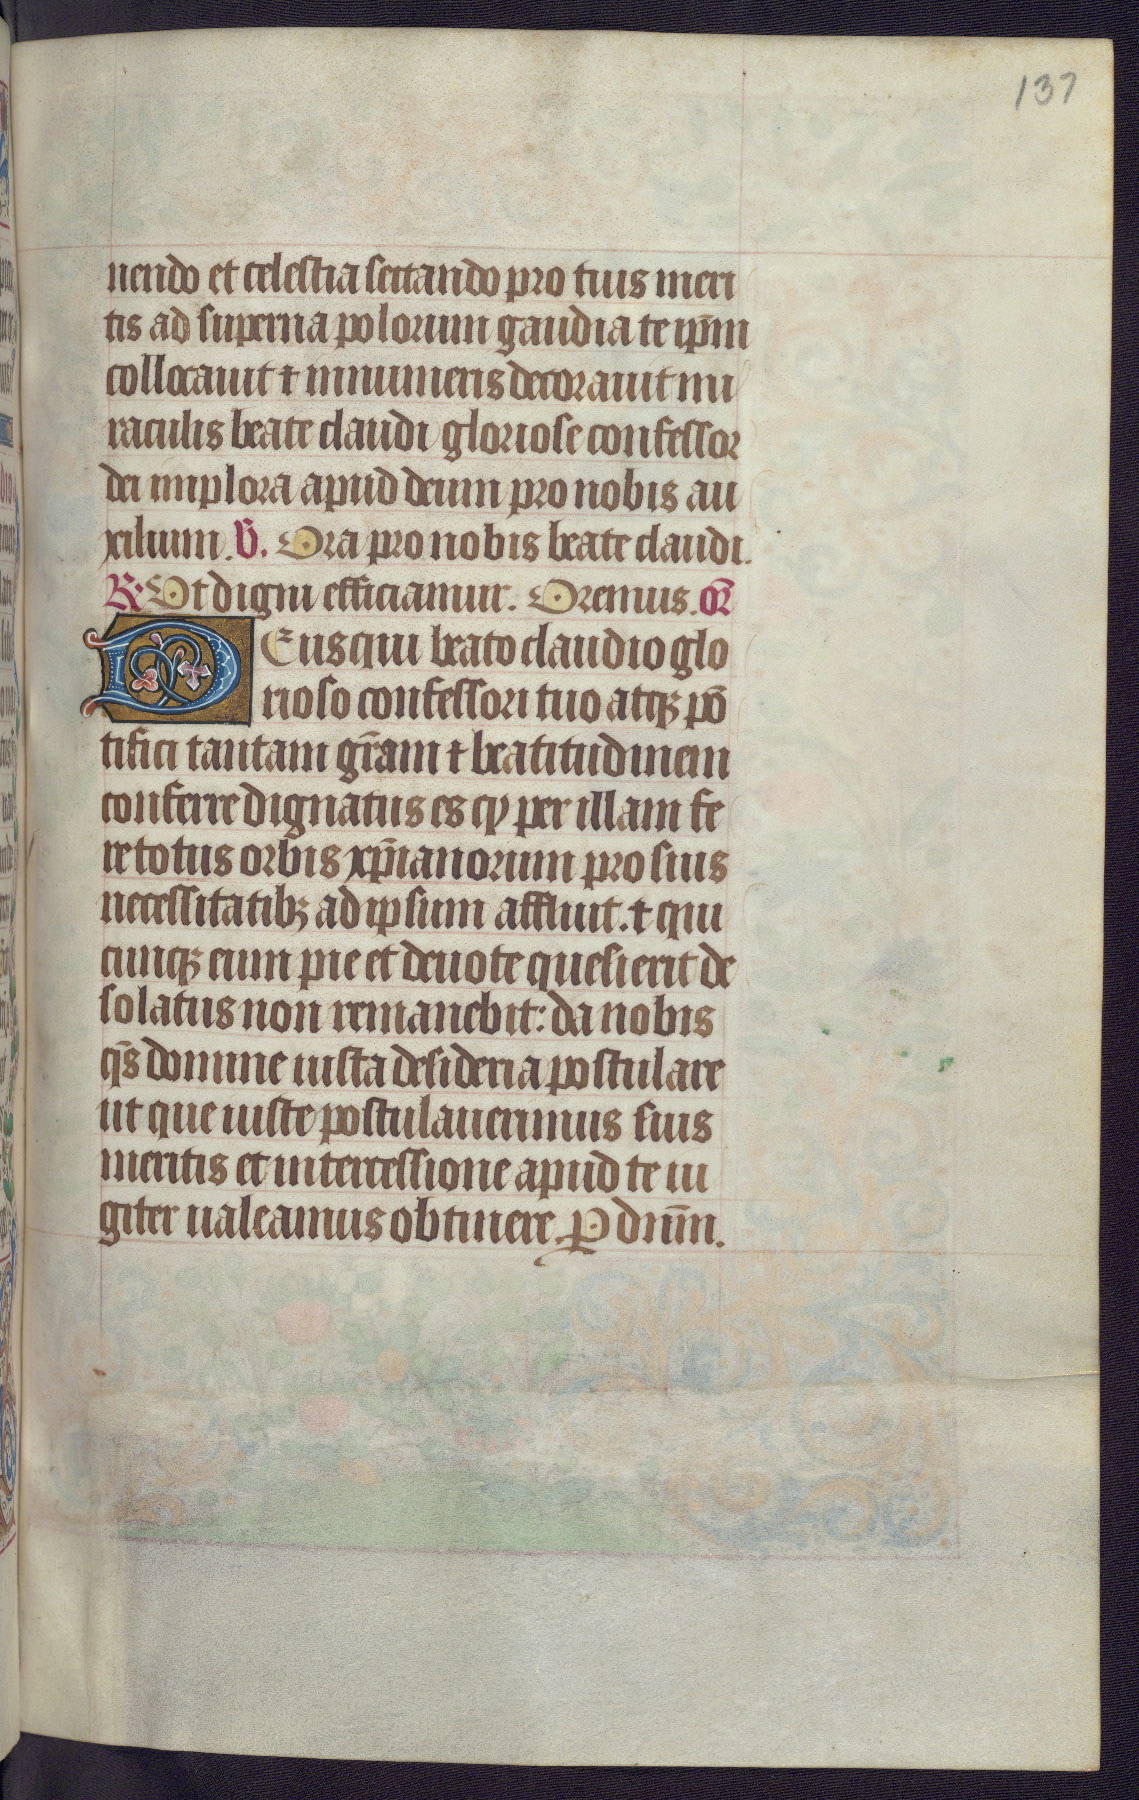 137
nendo et celestia sectando pro tuis meri
tis ad superna polorum gaudia te ip̄m
collocauit ⁊ innumeris decorauit mi
raculis beate claudi gloriose confessor
dei implora apud deum pro nobis au
xilium. ℣. Ora pro nobis beate claudi.
℟. Ut digni efficiamur. Oremus. or̄
Deus qui beato claudio glo
rioso confessori tuo atqꝫ pō
tifici tantam gr̄am ⁊ beatitudinem
conferre dignatus es ꝙ per illam fe
re totus orbis xp̄ianorum pro suis
necessitatibꝫ ad ipsum affluit. ⁊ qui
cunqꝫ eum pie et deuote quesierit de
solatus non remanebit: da nobis
qs̄ domine iusta desideria postulare
ut que iuste postulauerimus suis
meritis et intercessione apud te iu
giter ualeamus obtinere. P dnūm.